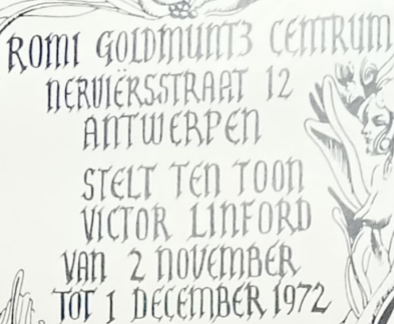 ROMI GOLDMUNTZ CENTRUM
NERVIËRSSTRAAT 12
ANTWERPEN
STELT TEN TOON
VICTOR LINFORD
VAN 2 NOVEMBER
TOT 1 DECEMBER 1972